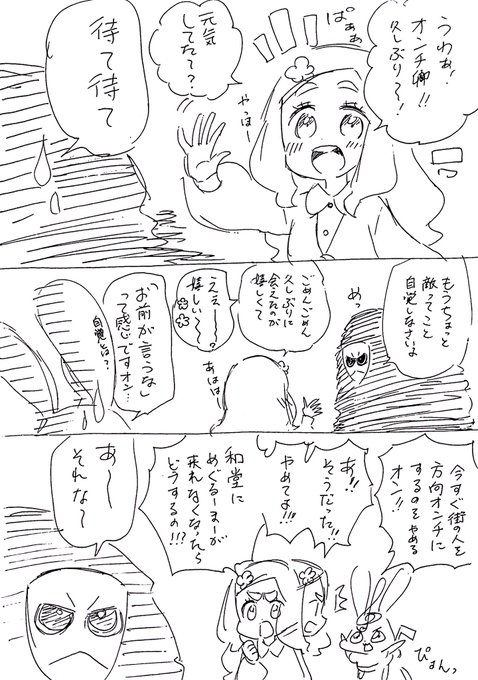 うわぁ!
オンチ卿!!
久しぶり〜!
ぱぁぁ
元気
してた〜?
やっほー
待て待て
もうちょっと
敵ってこと
自覚しなさいよ
めっ
ごめんごめん
久しぶりに
会えたのが
嬉しくて
ええー?
嬉しい〜
あははー
「お前が言うな」
って感じですオン…
自覚とは?
今すぐ街の人を
方向オンチに
するのをやめる
オン!!
ぴょんっ
あ!!
そうだった!!
やめてよ!!
和堂に
めぐるーまーが
来れなくなったら
どうするの!!?
あ〜
それな〜